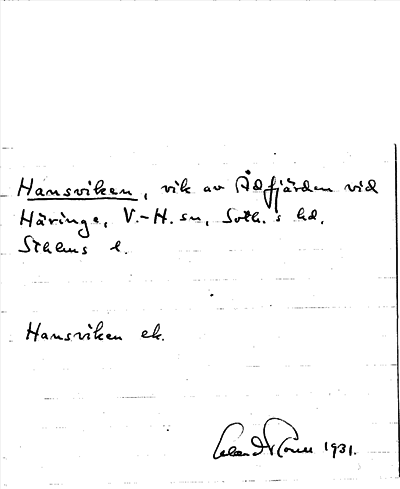 Hansviken, vik av Ådfjärden vid
Häringe, V.-H. sn, Soth.s hd.
Sthlms l.
Hansviken ek.
1931.